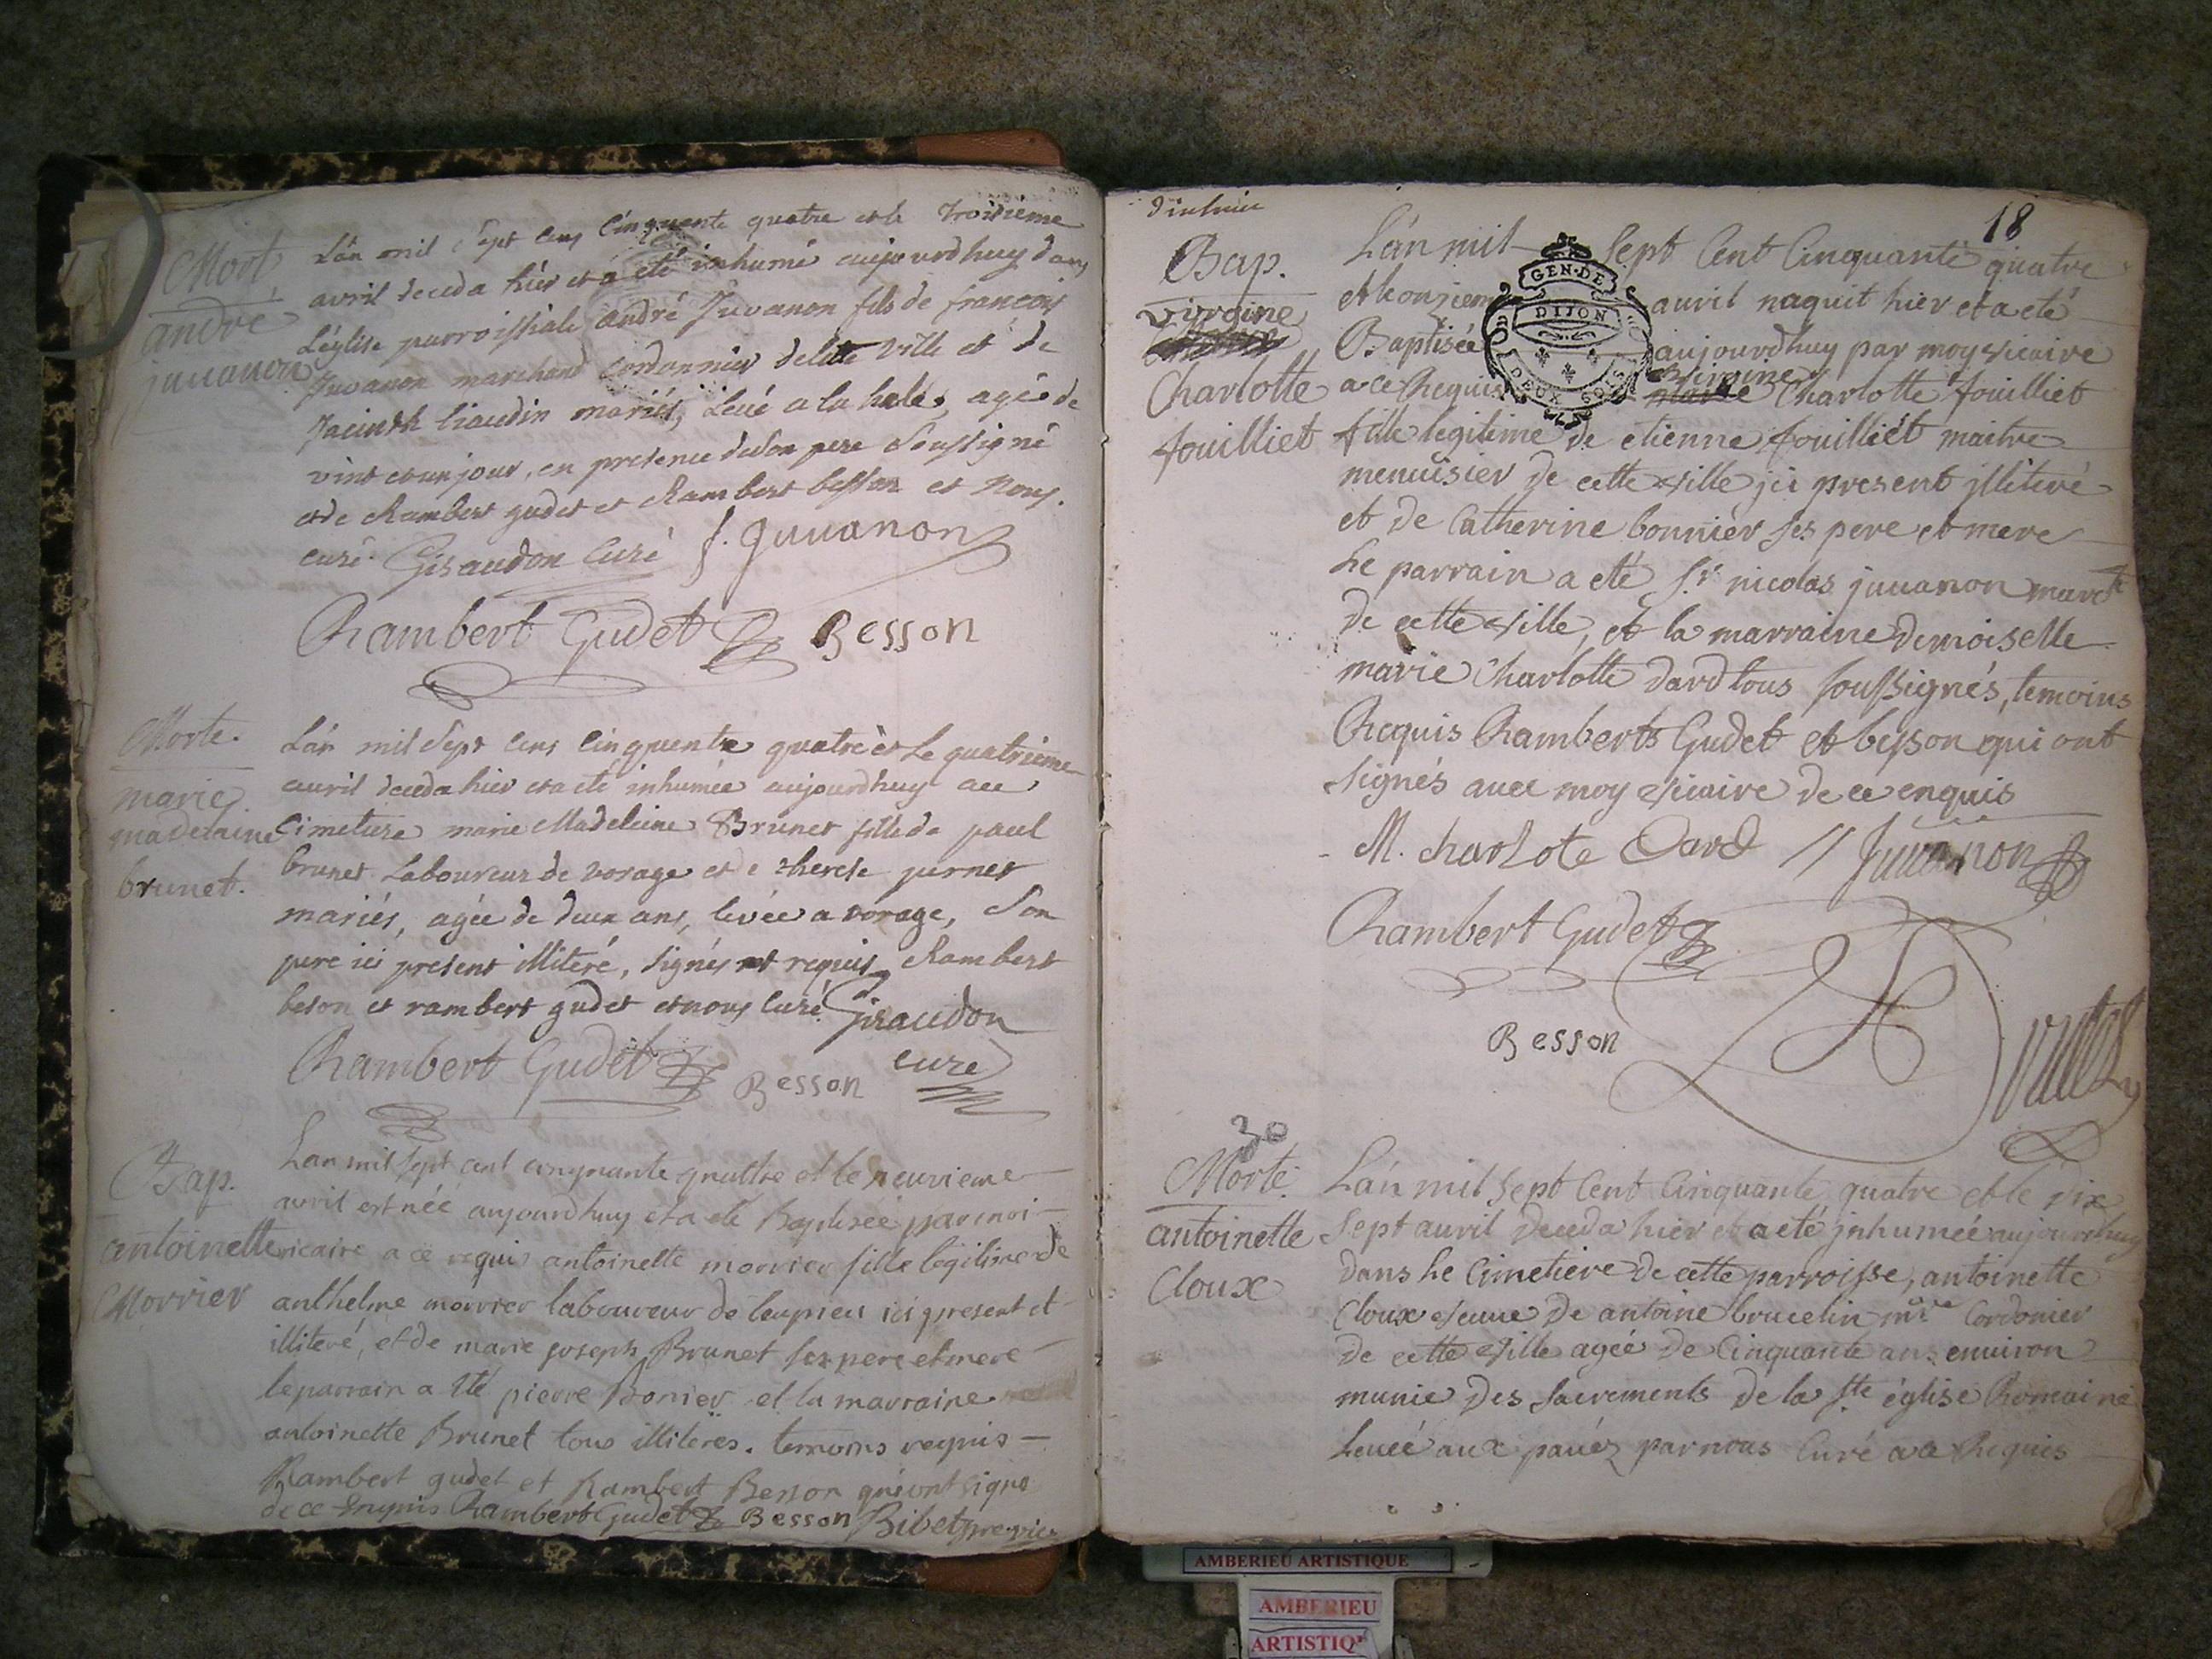 Mort
andré
juuanon
Lán mil sept cens cinquante quatre et le troisieme
avril deceda hier et a eté inhumé aujourdhuy dans
L'église parroissiale andré Juvanon fils de françois
Juvanon marchand cordonnier de cette ville et de
Jacinthe liaudin mariés, levé a la hale, agé de
vint et un jour, en presence de son pere soussigné
et de Rambert gudet et Rambert besson et nous.
curé. Giraudon curé f. Juuanon
Rambert Gudet Besson
Morte.
marie
madelaine
brunet.
Lán mil sept cens cinquente quatre et le quatrieme
avril deceda hier et a eté inhumée aujourdhuy au
cimetiere marie Madeleine Brunet fille de paul
brunet Laboureur de vorage et de therese pernet
mariés, agée de deux ans, levée a vorage, son
pere ici present illiteré, signés et requis Rambert
beson et rambert gudet et nous curé. Giraudon
curé
Rambert Gudet Besson
Bap.
antoinette
Morrier
Lan mil sept cent cinquante quattre et le neuvieme
avril est née aujourdhuy et a eté Baptisée par moi
vicaire a ce requis antoinette morrier fille legitime de
anthelme morrier laboureur de ici present et
illiteré, et de marie joseph Brunet ses pere et mere
le parrain a été pierre Bonier et la marraine
antoinette Brunet tous illiteres. temoins requis
Rambert gudet et Rambert Besson qui ont signé
de ce enquis Rambert Gudet Besson Bibet pre vic.
18
Bap.
virgine
Charlotte
fouilliet
Lán mil sept Cent Cinquante quatre
et le onzieme avril naquit hier et a eté
Baptisée aujourdhuy par moy vicaire
a ce Requis virgine Charlotte fouilliet
GEN·DE
DIJON
DEUX SOLS
fille legitime de etienne fouilliet maitre
menuisier de cette ville jci present jlliteré
et de Catherine bonnier ses pere et mere
Le parrain a eté Sr. nicolas juuanon march
de cette ville, et la marraine demoiselle
marie Charlotte dard tous soussignés, temoins
Requis Ramberts Gudet et besson qui ont
signés auec moy vicaire de ce enquis
M. charlote Dard Juuanon
Rambert Gudet
Besson
30
Morte.
antoinette
Cloux
Lán mil sept Cent Cinquante quatre et le dix
sept auril deceda hier et a eté jnhumée aujourdhuy
dans Le Cimetiere de cette parroisse, antoinette
Cloux veuue de antoine brucelin mre Cordonier
de cette ville agée de Cinquante ans enuiron
munie des sacrements de la ste église Romaine
Leueé aux pauéz par nous Curé a ce Requis
AMBERIEU ARTISTIQUE
AMBERIEU
ARTISTIQ